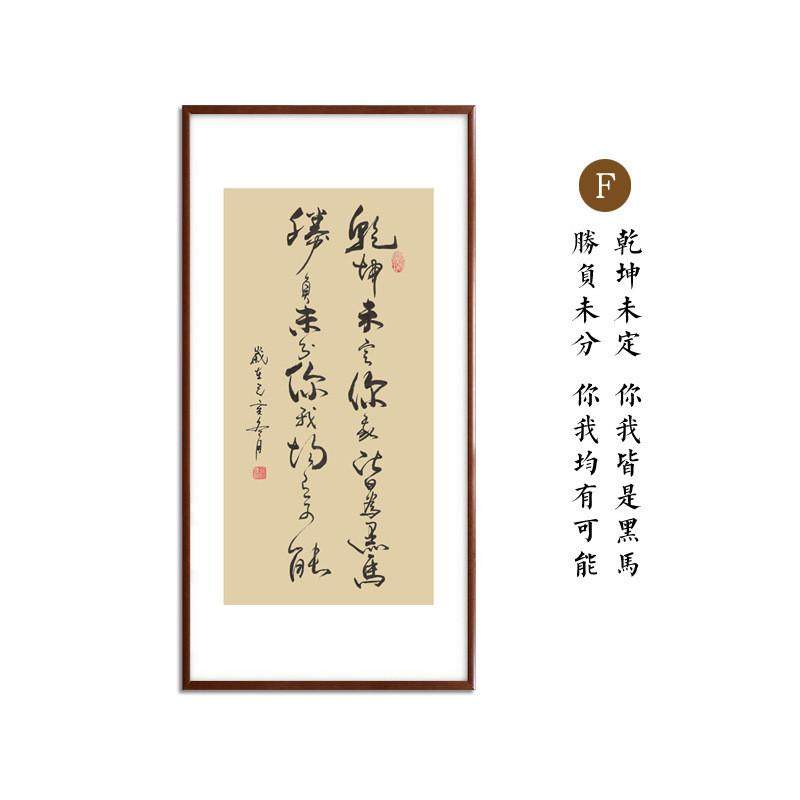 乾坤未定你我皆為黑馬
勝負未分你我均有可能
歲在己亥冬月
F
乾坤未定 你我皆是黑馬
勝負未分 你我均有可能